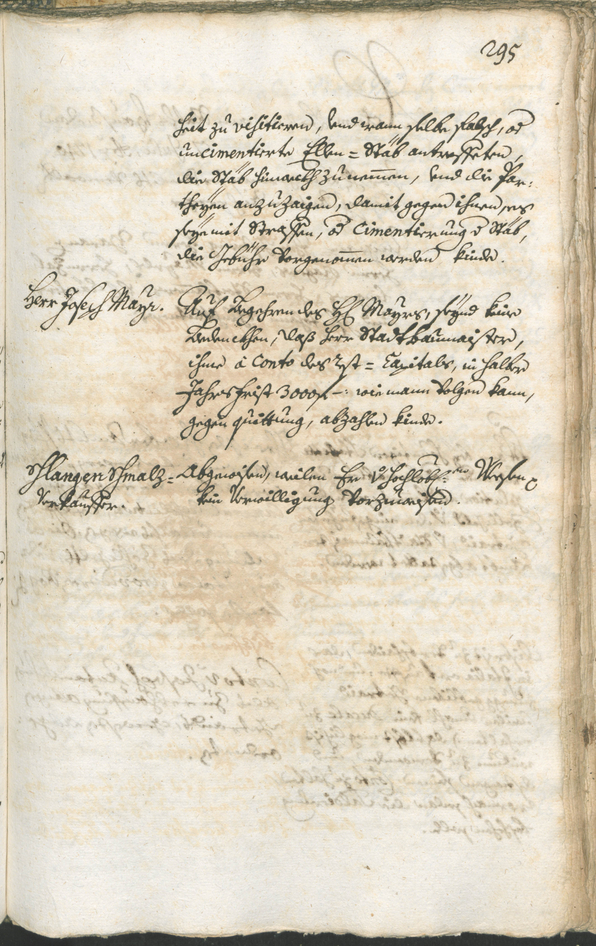 295
heit zu visitieren, und wann selbe falsch, od
uncimentierte Ellen=Stäb antreffeten,
die Stäb hinwekh zu nemen, und die Par:
theyen anzuzaigen, damit gegen ihnen, es
seye mit Straffen, od Cimentierung d Stäb,
die Gebühr vorgenomen werden kinde.
Herr Joseph Mayr. Auf Begehren des H Mayrs, seynd keine
Bedenckhen, daß Herr Stadtbaumaister,
ihme à Conto des Capitals, in halber
Jahrs frist 3000 f: wie mann volgen kann,
gegen quittung, abzahlen kinde.
Schlangen Schmalz= Abgewisen, weilen Er
Verkauffer. kein Verwilligung vorzuweisen